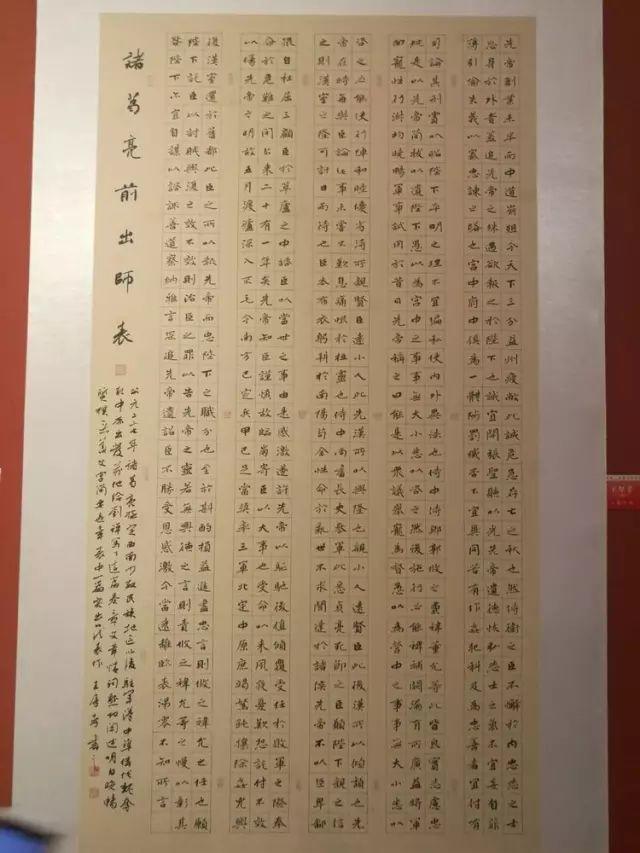 先帝創業未半而中道崩殂今天下三分益州疲敝此誠危急存亡之秋也然侍衛之臣不懈於內忠志之士
忘身於外者蓋追先帝之殊遇欲報之於陛下也誠宜開張聖聽以光先帝遺德恢弘志士之氣不宜妄自菲
薄引喻失義以塞忠諫之路也宮中府中俱為一體陟罰臧否不宜異同若有作姦犯科及為忠善者宜付有
司論其刑賞以昭陛下平明之理不宜偏私使內外異法也侍中侍郎郭攸之費禕董允等此皆良實志慮忠
純是以先帝簡拔以遺陛下愚以為宮中之事事無大小悉以咨之然後施行必能裨補闕漏有所廣益將軍
向寵性行淑均曉暢軍事試用於昔日先帝稱之曰能是以眾議舉寵為督愚以為營中之事事無大小悉以
咨之必能使行陣和睦優劣得所親賢臣遠小人此先漢所以興隆也親小人遠賢臣此後漢所以傾頹也先
帝在時每與臣論此事未嘗不歎息痛恨於桓靈也侍中尚書長史參軍此悉貞亮死節之臣願陛下親之信
之則漢室之隆可計日而待也臣本布衣躬耕於南陽苟全性命於亂世不求聞達於諸侯先帝不以臣卑鄙
猥自枉屈三顧臣於草廬之中諮臣以當世之事由是感激遂許先帝以驅馳後值傾覆受任於敗軍之際奉
命於危難之間爾來二十有一年矣先帝知臣謹慎故臨崩寄臣以大事也受命以來夙夜憂歎恐託付不效
以傷先帝之明故五月渡瀘深入不毛今南方已定兵甲已足當獎率三軍北定中原庶竭駑鈍攘除姦兇興
復漢室還於舊都此臣之所以報先帝而忠陛下之職分也至於斟酌損益進盡忠言則攸之禕允之任也願
陛下託臣以討賊興復之效不效則治臣之罪以告先帝之靈若無興德之言則責攸之禕允等之慢以彰其
咎陛下亦宜自謀以諮諏善道察納雅言深追先帝遺詔臣不勝受恩感激今當遠離臨表涕零不知所言
諸葛亮前出師表
公元二二七年諸葛亮穩定西南少數民族地區以後駐軍漢中準備伐魏奪
取中原出發前他給劉禪寫了這篇奏章文章情詞懇切闡述明白曉暢
質樸無華文字簡練是表章中一篇突出的代表作 王 書